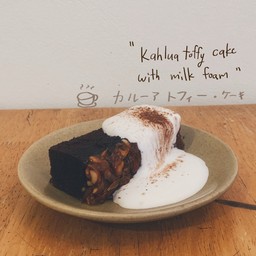 "Kahlua toffy cake
with milk foam"
カルーア トフィー・ケーキ